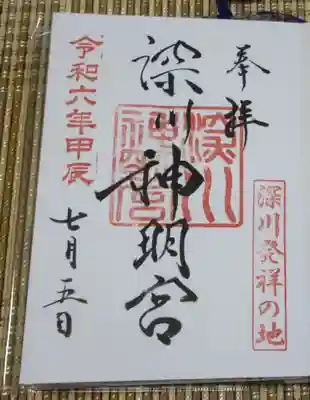 奉拝
深川発祥の地
深川神明宮
深川神明宮
令和六年甲辰
七月五日